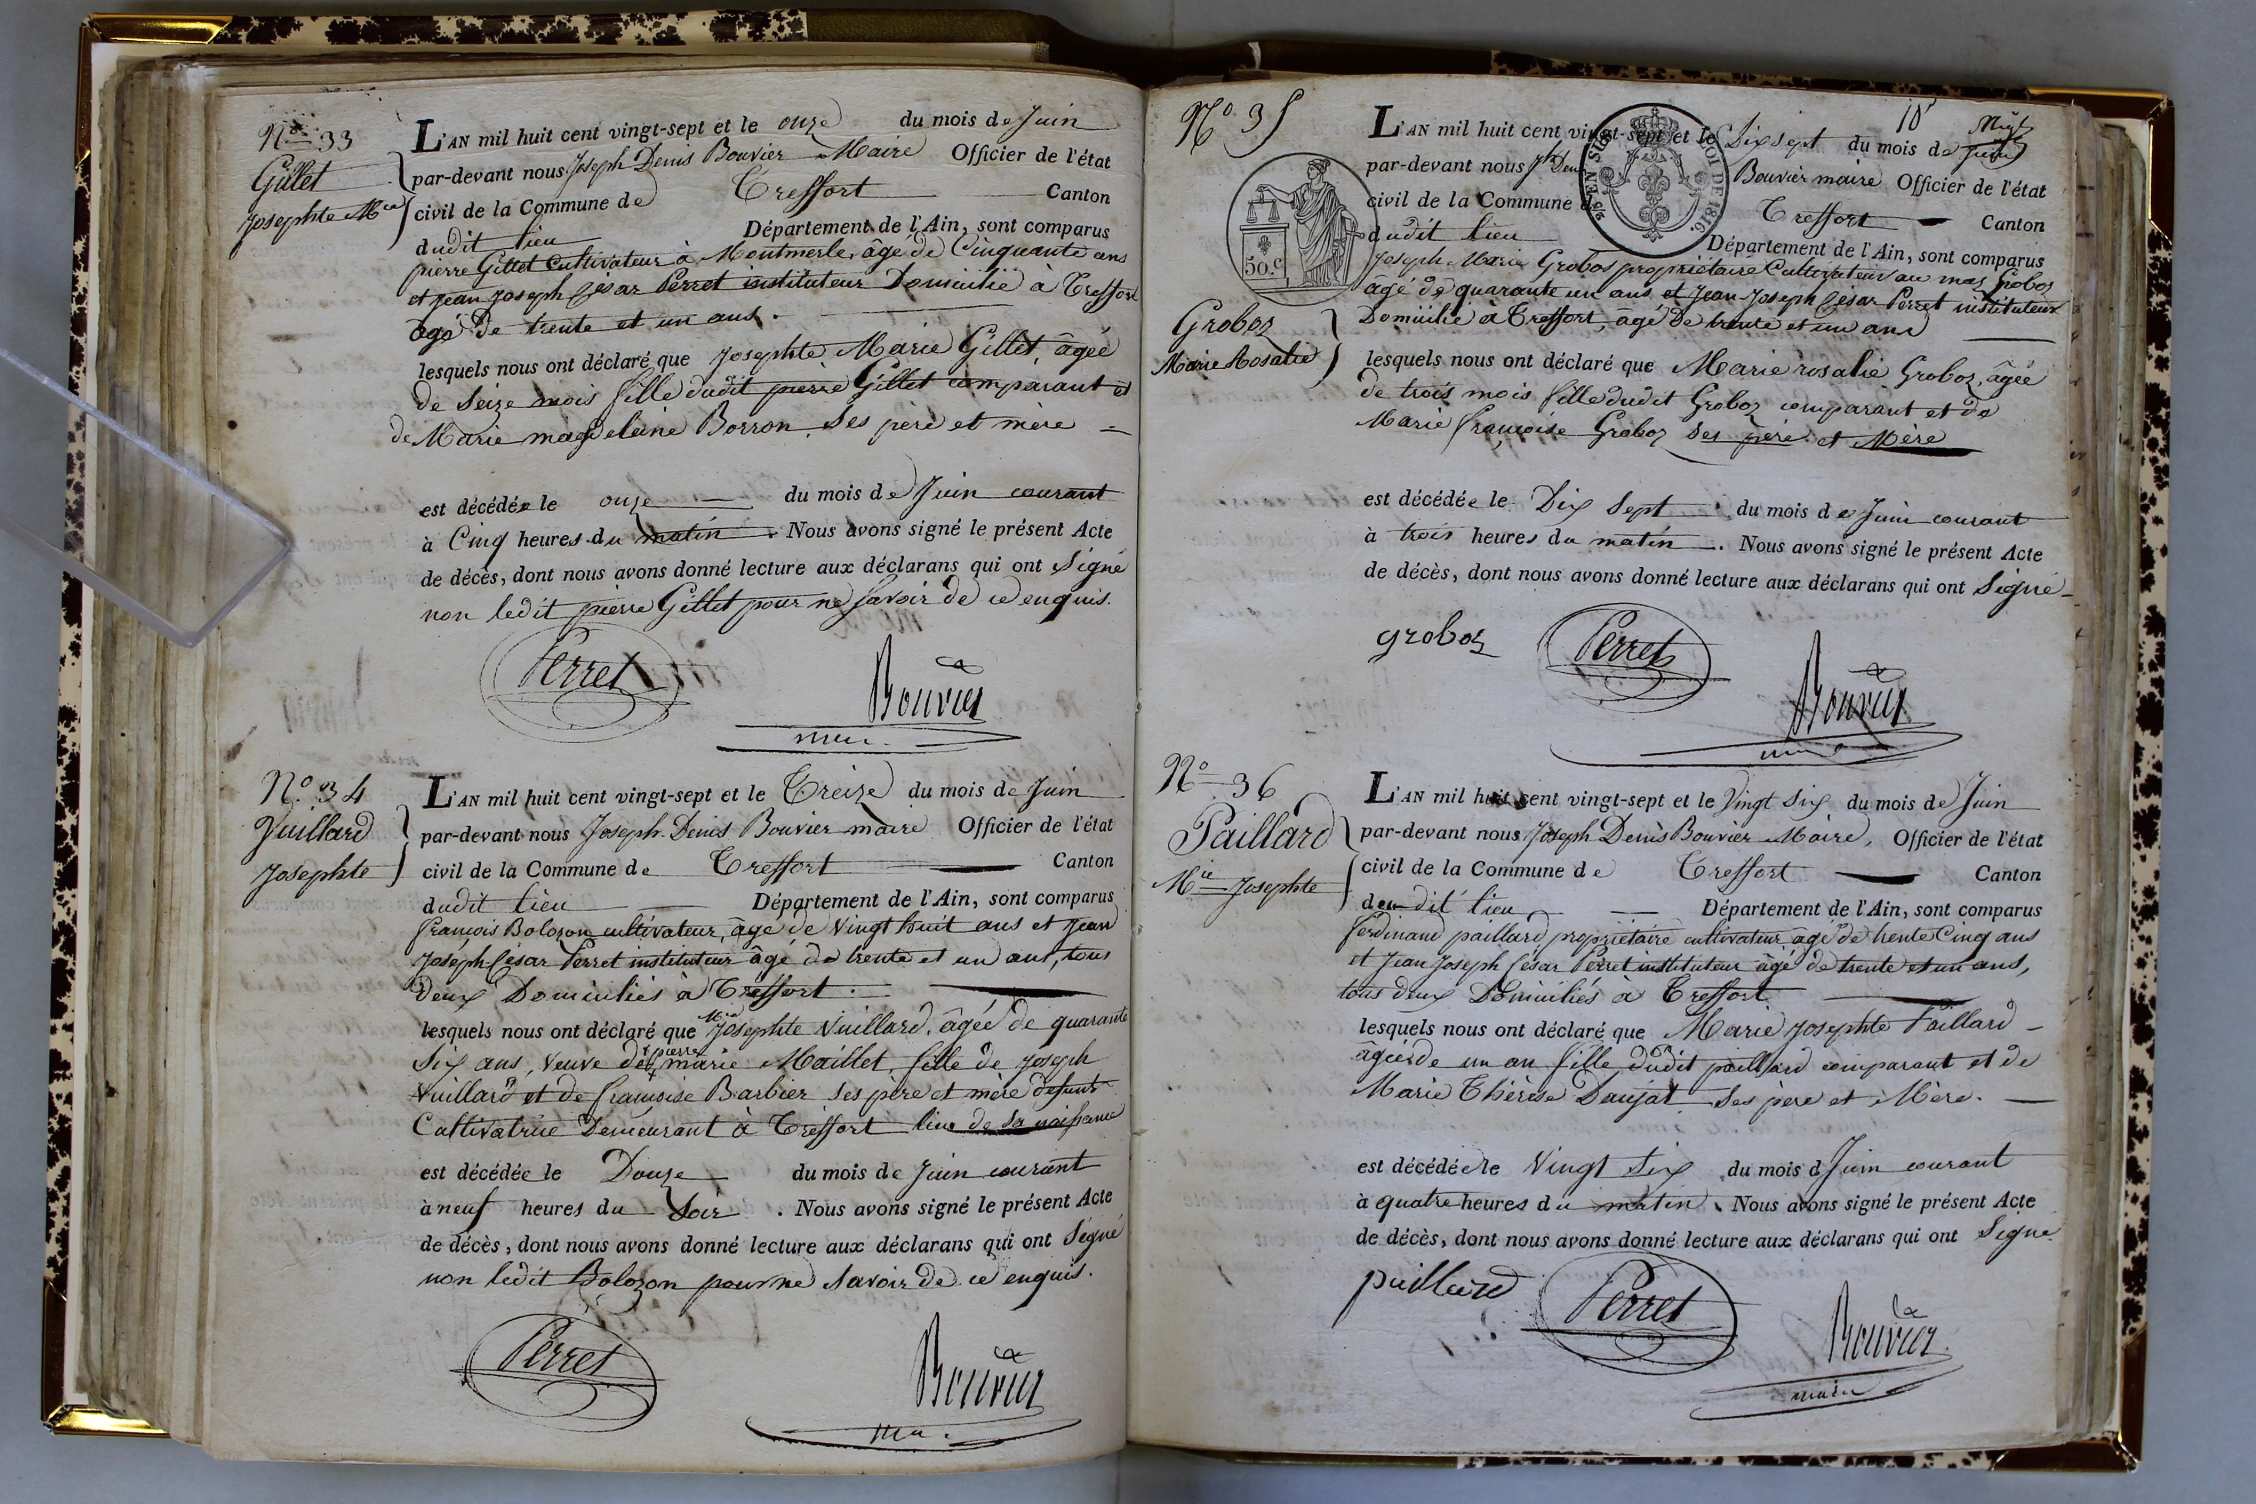 N.º 33
Gillet
Josephte M.ie
L'AN mil huit cent vingt-sept et le onze du mois de Juin
par-devant nous Joseph Denis Bouvier Maire Officier de l'état
civil de la Commune de Treffort Canton
dudit lieu Département de l'Ain, sont comparus
pierre Gillet Cultivateur à Montmerle, âgé de Cinquante ans
et Jean Joseph César Perret instituteur Domicilié à Treffort
âgé de trente et un ans.
lesquels nous ont déclaré que Josephte Marie Gillet, âgée
de Seize mois fille dudit pierre Gillet comparant et
de Marie magdeleine Borron Ses père et mère
est décédée le onze du mois de Juin courant
à Cinq heures du matin. Nous avons signé le présent Acte
de décès, dont nous avons donné lecture aux déclarans qui ont Signé
non ledit pierre Gillet pour ne savoir de ce enquis.
Perret
Bouvier
N.º 34
Vuillard
Josephte
L'AN mil huit cent vingt-sept et le Treize du mois de Juin
par-devant nous Joseph Denis Bouvier maire Officier de l'état
civil de la Commune de Treffort Canton
dudit lieu Département de l'Ain, sont comparus
françois Bolozon cultivateur, âgé de Vingt huit ans et Jean
Joseph César Perret instituteur âgé de trente et un ans, tous
deux Domiciliés à Treffort.
lesquels nous ont déclaré que M.ie Josephte Vuillard, âgée de quarante
Six ans, Veuve de pierre marie Maillet, fille de Joseph
Vuillard et de françoise Barbier ses père et mère defunts
Cultivatrice Demeurant à Treffort lieu de Sa naissance
est décédée le Douze du mois de Juin courant
à neuf heures du Soir. Nous avons signé le présent Acte
de décès, dont nous avons donné lecture aux déclarans qui ont Signé
non ledit Bolozon pour ne savoir de ce enquis.
Perret
Bouvier
18
N.º 35
50.c
LOI DE 1816.
Groboz
Marie Rosalie
L'AN mil huit cent vingt-sept et le Dix sept du mois de Juin
par-devant nous Jh Denis Bouvier maire Officier de l'état
civil de la Commune de Treffort Canton
dudit lieu Département de l'Ain, sont comparus
Joseph Marie Groboz propriétaire Cultivateur au mas Groboz
âgé de quarante un ans et Jean Joseph César Perret instituteur
Domicilié à Treffort, âgé de trente et un ans
lesquels nous ont déclaré que Marie rosalie Groboz, âgée
de trois mois fille dudit Groboz comparant et de
Marie françoise Groboz Ses père et Mère
est décédée le Dix Sept du mois de Juin courant
à trois heures du matin. Nous avons signé le présent Acte
de décès, dont nous avons donné lecture aux déclarans qui ont Signé
groboz
Perret
Bouvier
N.º 36
Paillard
M.ie Josephte
L'AN mil huit cent vingt-sept et le Vingt Six du mois de Juin
par-devant nous Joseph Denis Bouvier Maire, Officier de l'état
civil de la Commune de Treffort Canton
dudit lieu Département de l'Ain, sont comparus
ferdinand paillard propriétaire cultivateur âgé de trente Cinq ans
et Jean Joseph César Perret instituteur âgé de trente et un ans,
tous deux Domiciliés à Treffort
lesquels nous ont déclaré que Marie Josephte Paillard
âgée de un an fille dudit paillard comparant et de
Marie Thérèse Daujat Ses père et Mère.
est décédée le Vingt Six du mois d Juin courant
à quatre heures du matin. Nous avons signé le présent Acte
de décès, dont nous avons donné lecture aux déclarans qui ont Signé
paillard
Perret
Bouvier
maire